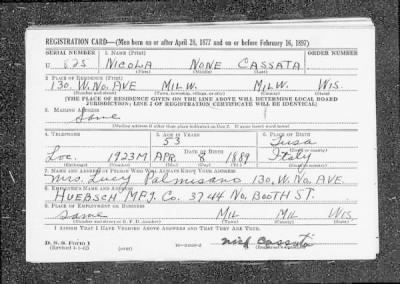 REGISTRATION CARD—(Men born on or after April 28, 1877 and on or before February 16, 1897)
SERIAL NUMBER 1. NAME (Print) ORDER NUMBER
U 825 NICOLA NONE CASSATA
(First) (Middle) (Last)
2. PLACE OF RESIDENCE (Print)
130. W. NO. AVE MILW. MILW. WIS.
(Number and street) (Town, township, village, or city) (County) (State)
[THE PLACE OF RESIDENCE GIVEN ON THE LINE ABOVE WILL DETERMINE LOCAL BOARD
JURISDICTION; LINE 2 OF REGISTRATION CERTIFICATE WILL BE IDENTICAL]
3. MAILING ADDRESS
Same
[Mailing address if other than place indicated on line 2. If same insert word same]
4. TELEPHONE 5. AGE IN YEARS 6. PLACE OF BIRTH
53 Tusa
DATE OF BIRTH
Loc. 1923M APR. 8 1889 Italy
(Exchange) (Number) (Mo.) (Day) (Yr.) (State or country)
7. NAME AND ADDRESS OF PERSON WHO WILL ALWAYS KNOW YOUR ADDRESS
Mrs. Lucy Palmisano 130. W. NO. AVE.
8. EMPLOYER'S NAME AND ADDRESS
HUEBSCH MFG. CO. 3744 NO. BOOTH ST.
9. PLACE OF EMPLOYMENT OR BUSINESS
Same MIL MIL WIS.
(Number and street or R. F. D. number) (Town) (County) (State)
I AFFIRM THAT I HAVE VERIFIED ABOVE ANSWERS AND THAT THEY ARE TRUE.
D. S. S. Form 1
(Revised 4-1-42) (over) Nick Cassata